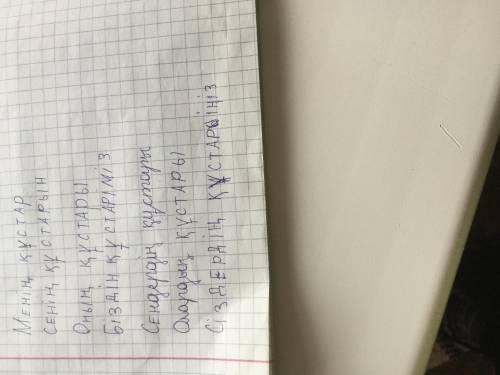 Менің құстар
Сенің құстарын
Оның құстары
Біздін құстаріміз
Сендердің құстары
Олардың құстары
Сіздердің құстарыіңіз